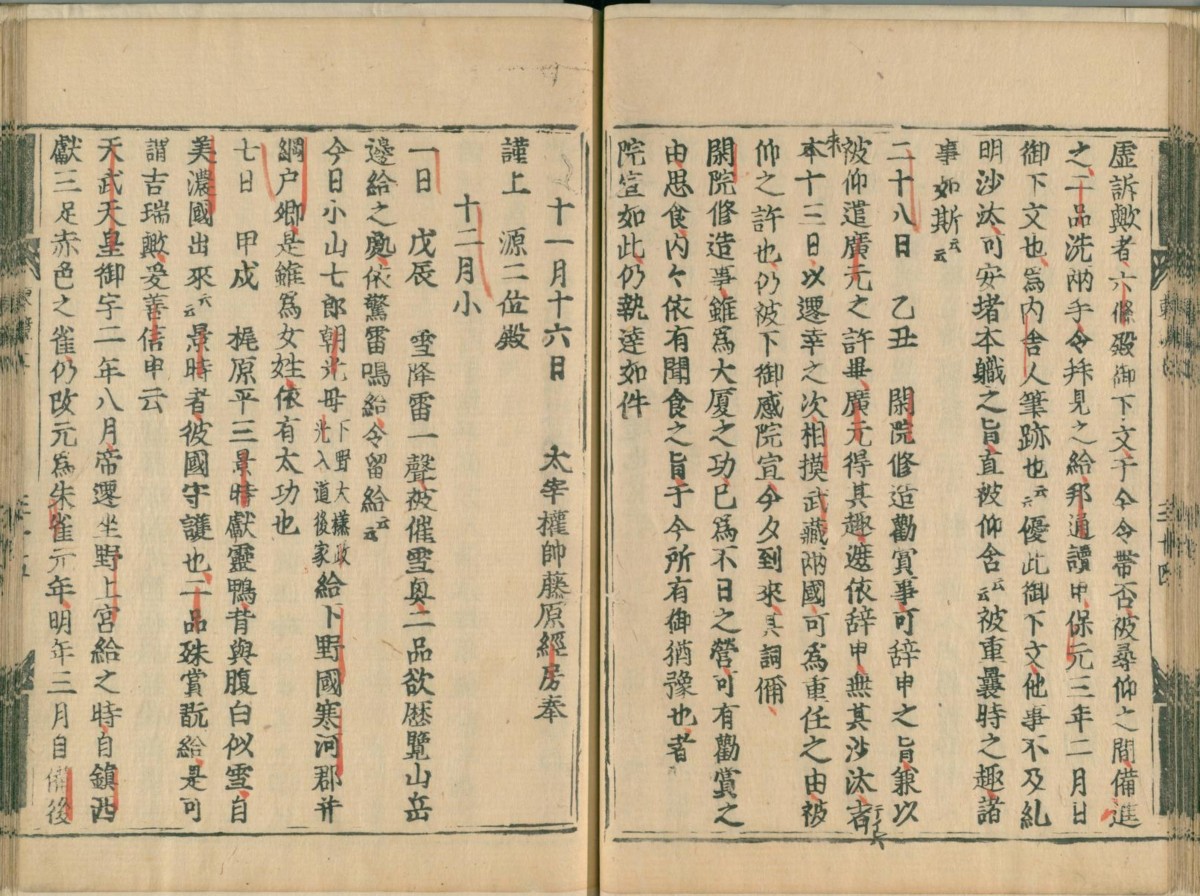 虚訴歟者六條殿御下文于今令帶否被尋仰之間備進
之二品洗兩手令拜見之給邦通讀申保元三年二月日
御下文也爲内舎人筆跡也云云優此御下文他事不及糺
明沙汰可安堵本軄之旨直被仰含云云被重曩時之趣諸
事如斯云云
二十八日 乙丑 閑院修造勸賞事可辞申之旨兼以
被仰遣廣元之許畢廣元得其趣進依辞申無其沙汰者
本十三日以遷幸之次相摸武藏兩國可爲重任之由被
仰之許也仍被下御感院宣今夕到來其詞俻
閑院修造事雖爲大厦之功已爲不日之營可有勸賞之
由思食内々依有聞食之旨于今所有御猶豫也者
院宣如此仍執達如件
十一月十六日 太宰權帥藤原經房奉
謹上 源二位殿
十二月小
一日 戊辰 雪降雷一聲被催雪奥二品欲歴覽山岳
邊給之處依驚雷鳴給令留給云云
今日小山七郎朝光母下野大掾政光入道後家給下野國寒河郡并
綱戸郷是雖爲女姓依有大功也
七日 甲戌 梶原平三景時獻靈鴨昔與腹白似雪自
美濃國出來云云景時者彼國守護也二品殊賞翫給是可
謂吉瑞歟爰善信申云
天武天皇御宇二年八月帝遷坐野上宮給之時自鎮西
獻三足赤色之雀仍改元爲朱雀元年明年三月自備後